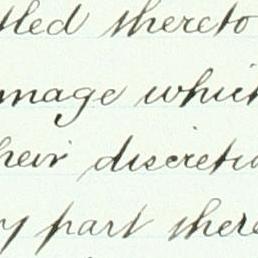 tled thereto
mage which
heir discretio
y part there